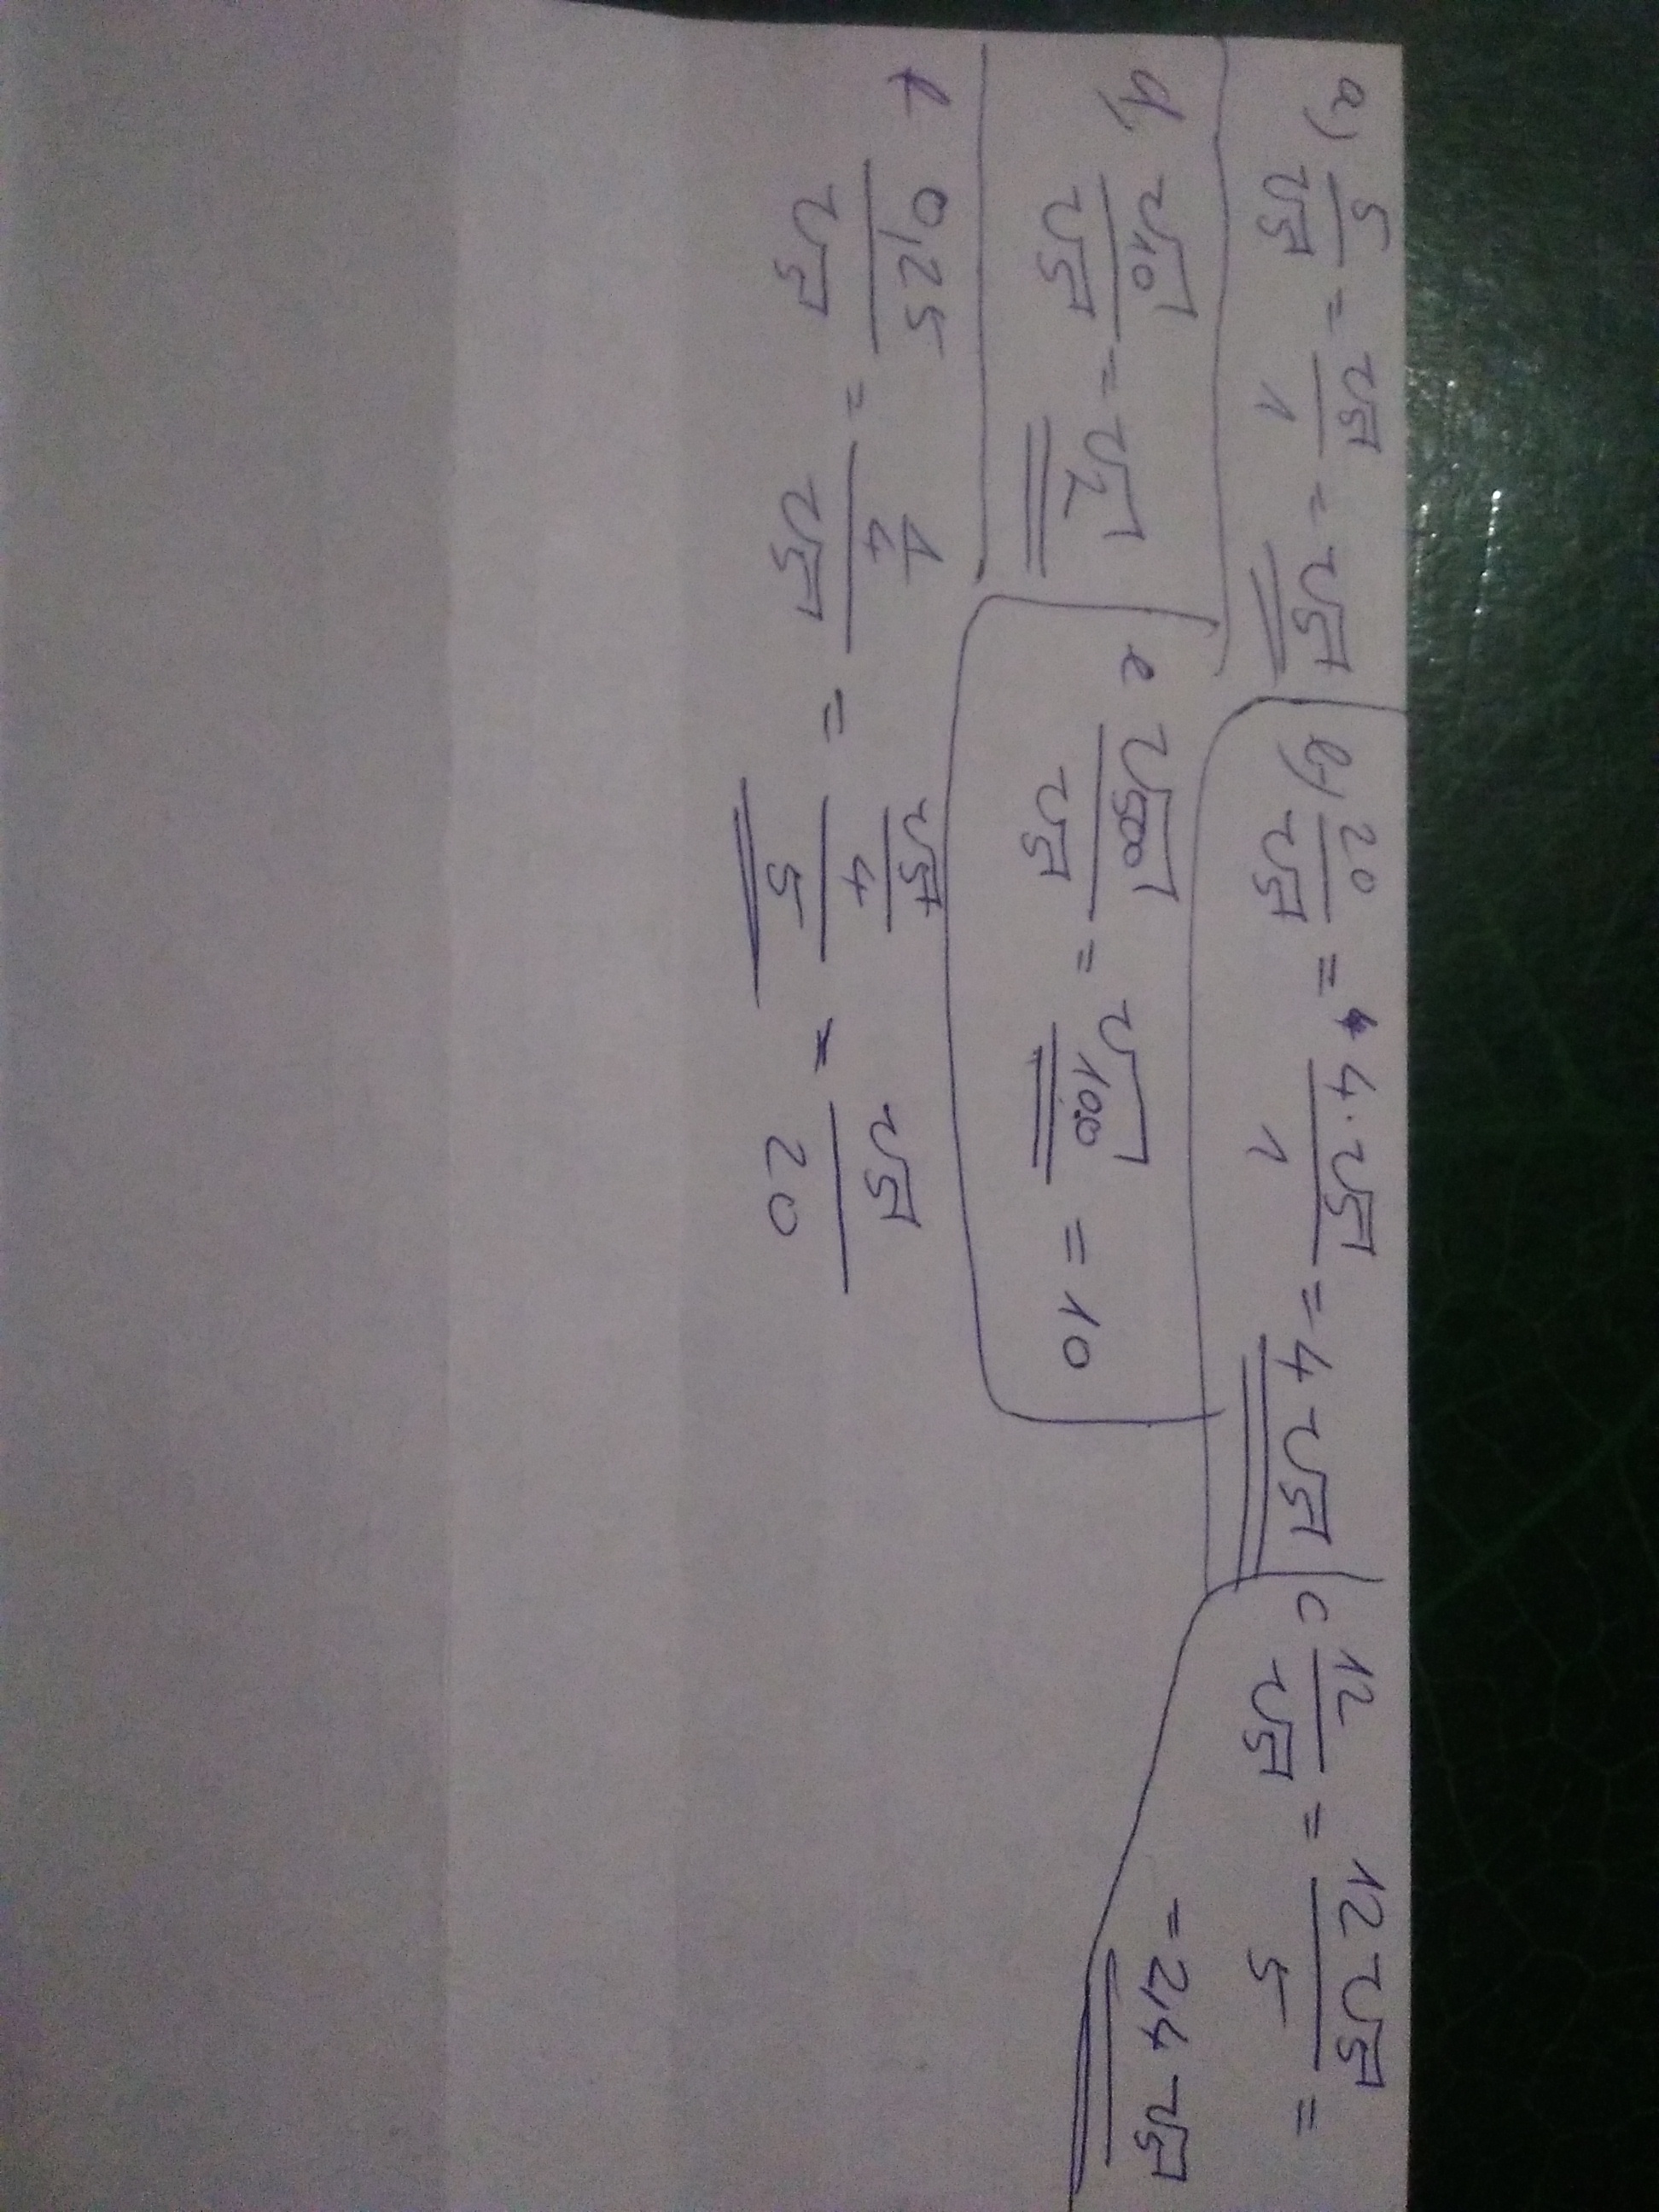 a) 5/√5 = √5/1 = √5
b) 20/√5 = 4·√5/1 = 4√5
c 12/√5 = 12√5/5 =
= 2,4 √5
d) √10/√5 = √2
e √500/√5 = √100 = 10
f 0,25/√5 = (1/4)/√5 = (√5/4)/5 = √5/20